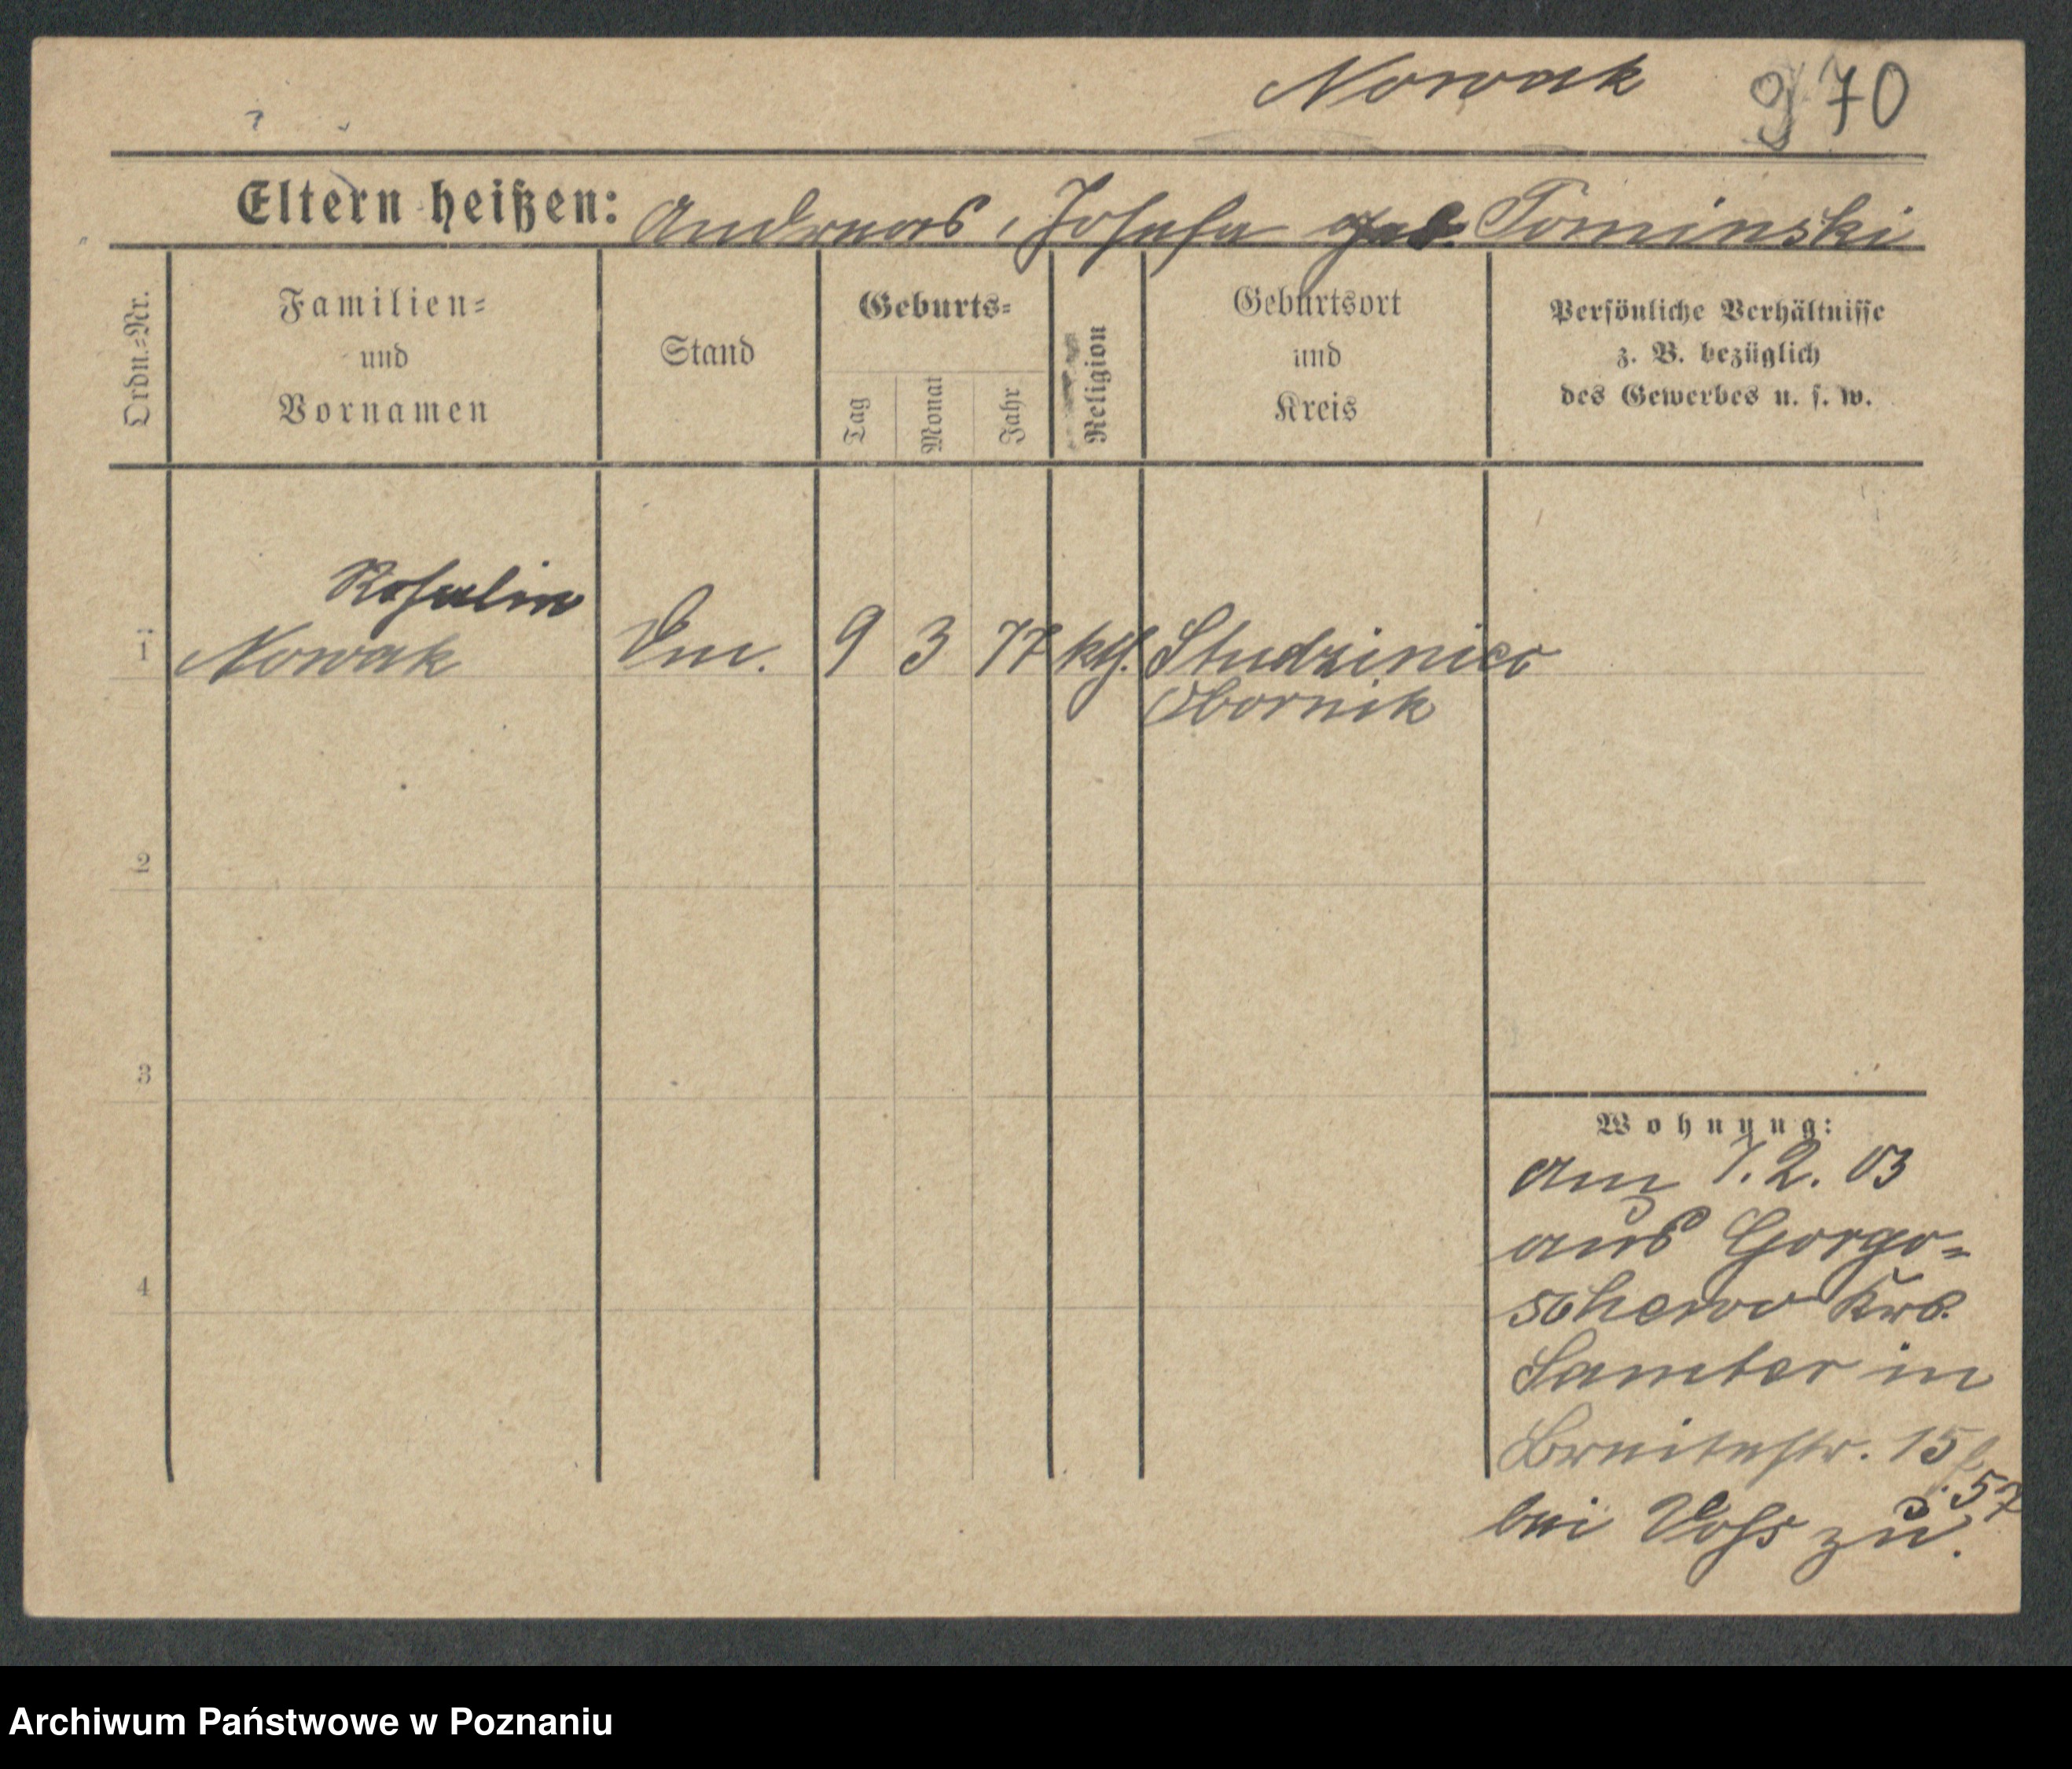 Nowak 970
Eltern heißen: Andreas, Josefa geb. Tominski
Ordn.=Nr.
Familien=
und
Vornamen
Stand
Geburts=
Tag
Monat
Jahr
Religion
Geburtsort
und
Kreis
Persönliche Verhältnisse
z. B. bezüglich
des Gewerbes u. s. w.
Rosalin
1 Nowak 9 3 77 kth. Studzinico
Obornik
2
3
4
Wohnung:
am 7.2.03
aus Gorgo=
schewo Krs.
Samter in
Breitestr. 15
bei Voss zu.
Archiwum Państwowe w Poznaniu